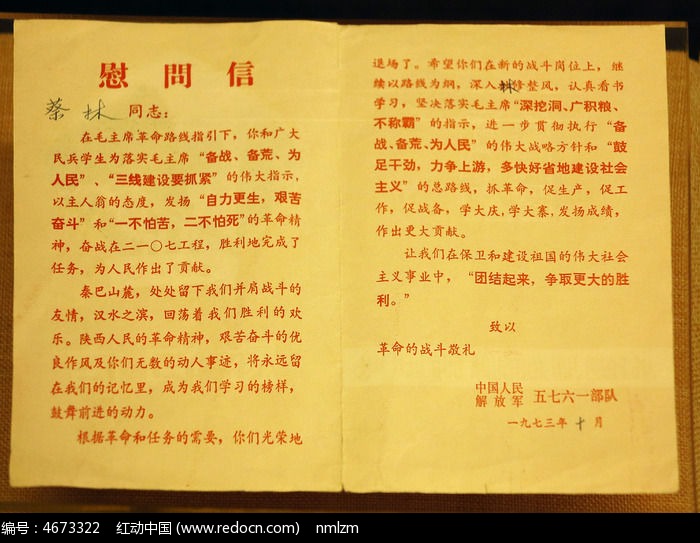 慰問信
蔡林 同志：
在毛主席革命路线指引下，你和广大
民兵学生为落实毛主席“备战、备荒、为
人民”、“三线建设要抓紧”的伟大指示，
以主人翁的态度，发扬“自力更生，艰苦
奋斗”和“一不怕苦，二不怕死”的革命精
神，奋战在二一〇七工程，胜利地完成了
任务，为人民作出了贡献。
秦巴山麓，处处留下我们并肩战斗的
友情，汉水之滨，回荡着我们胜利的欢
乐。陕西人民的革命精神，艰苦奋斗的优
良作风及你们无数的动人事迹，将永远留
在我们的记忆里，成为我们学习的榜样，
鼓舞前进的动力。
根据革命和任务的需要，你们光荣地
退场了。希望你们在新的战斗岗位上，继
续以路线为纲，深入修整风，认真看书
学习，坚决落实毛主席“深挖洞、广积粮、
不称霸”的指示，进一步贯彻执行“备
战、备荒、为人民”的伟大战略方针和“鼓
足干劲，力争上游，多快好省地建设社会
主义”的总路线，抓革命，促生产，促工
作，促战备，学大庆，学大寨，发扬成绩，
作出更大贡献。
让我们在保卫和建设祖国的伟大社会
主义事业中，“团结起来，争取更大的胜
利。”
致以
革命的战斗敬礼
中国人民解放军 五七六一部队
一九七三年十月
编号：4673322 红动中国 (www.redocn.com) nmlzm